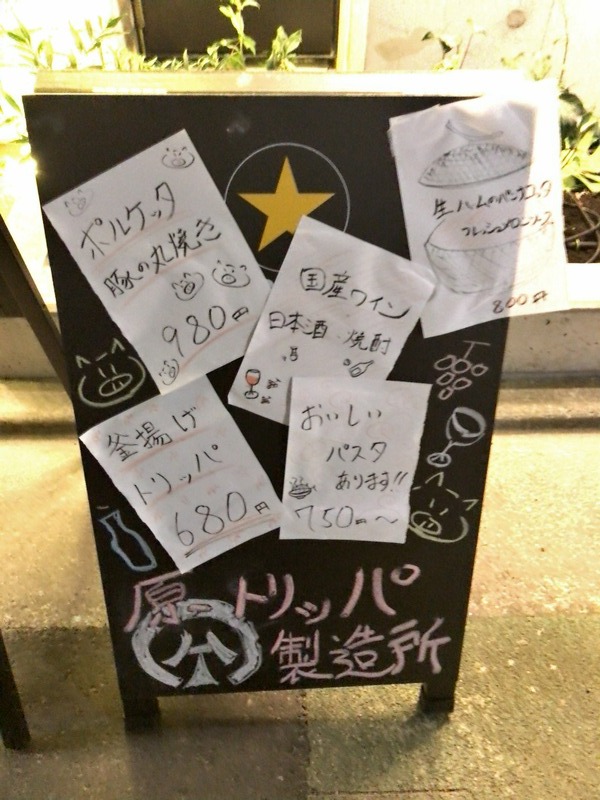 ポルケッタ
豚の丸焼き
980円
生ハムのパンコッタ
フレッシュメロンソース
800円
国産ワイン
日本酒 焼酎
釜揚げ
トリッパ
680円
おいしい
パスタ
あります!!
750円〜
原トリッパ
製造所